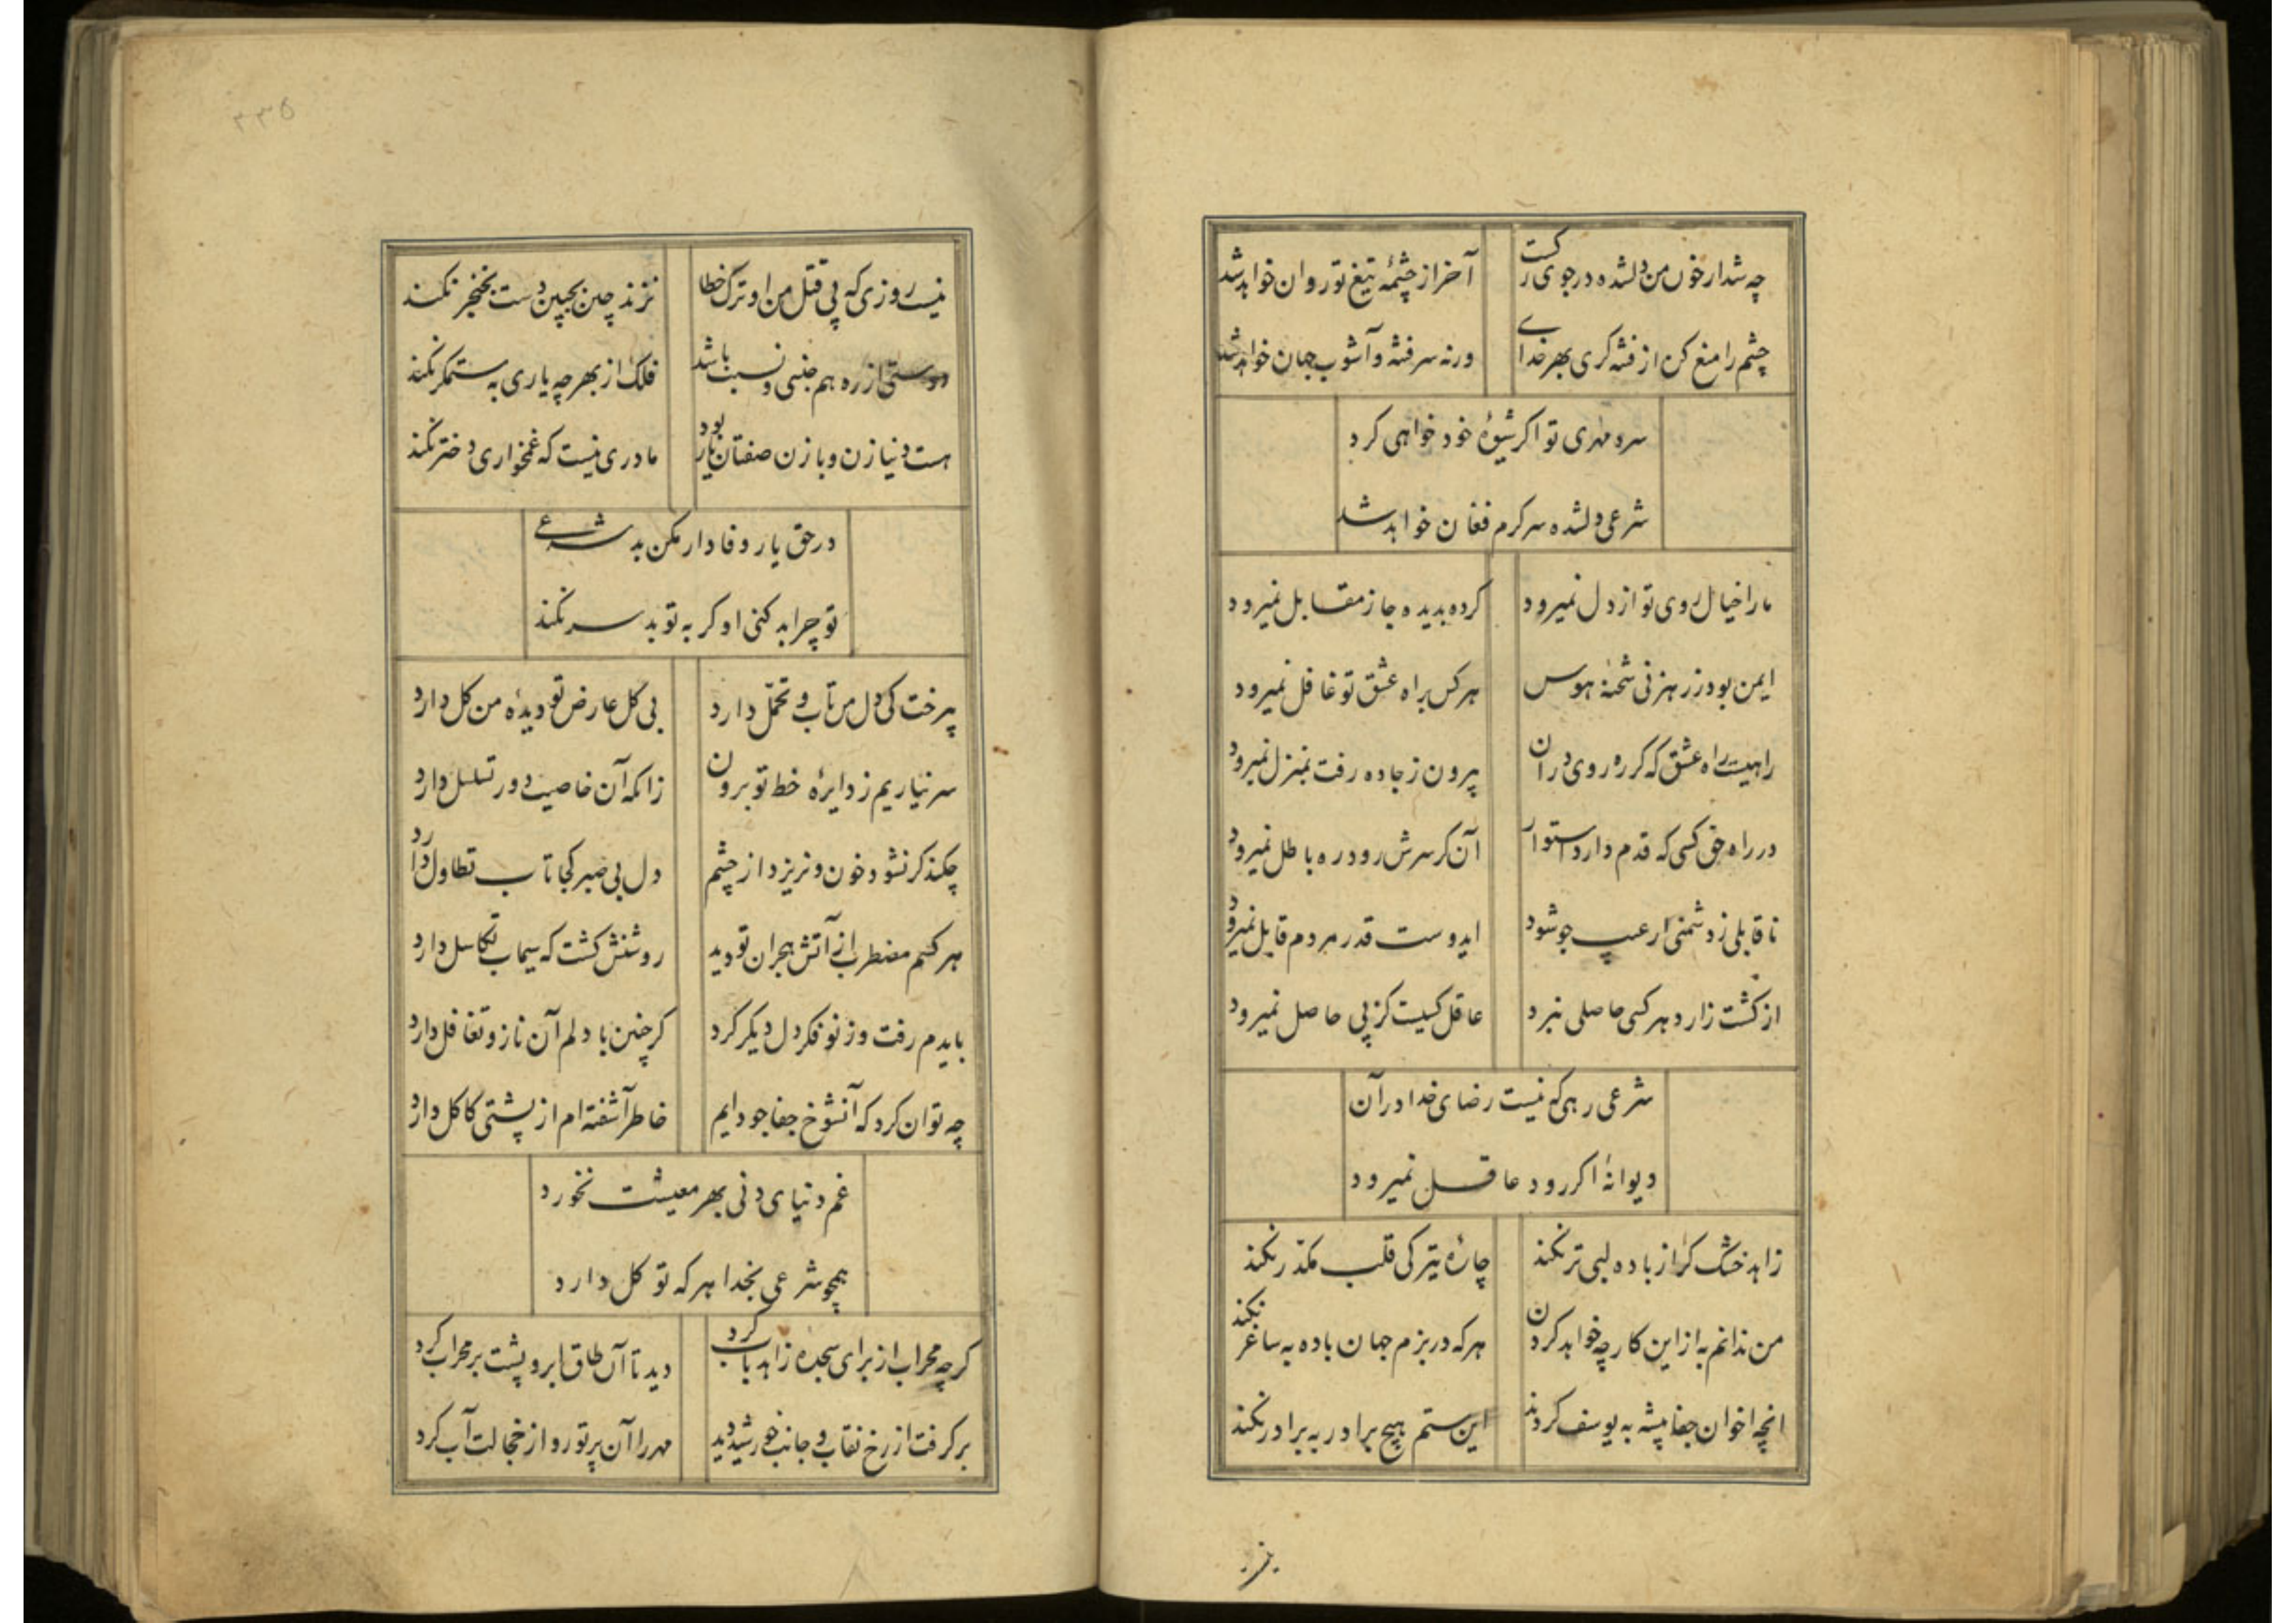 چه شد ار خون من دلشده در جوی رکت
آخر از چشمهٔ تیغ تو روان خواهد شد
چشم را منع کن از فتنه کری بهر خدای
ورنه سر فتنه و آشوب جهان خواهد شد
سرو مهری تو اکر شیوهٔ خود خواهی کرد
شرعی دلشده سرکرم فغان خواهد شد
ما را خیال روی تو از دل نمیرود
کرده بدیده جا ز مقابل نمیرود
ایمن بود ز رهزنی شحنهٔ هوس
هر کس براه عشق تو غافل نمیرود
راهیست راه عشق که کر ره روی در ان
بیرون ز جاده رفت بمنزل نمیرود
در راه حق کسی که قدم دارد استوار
آن کر سرش رود ره باطل نمیرود
ناقابلی ز دشمنی ار عیب جو شود
ایدوست قدر مردم قابل نمیرود
از کشت زار دهر کسی حاصلی نبرد
عاقل کسیست کز پی حاصل نمیرود
شرعی رهی که نیست رضای خدا در آن
دیوانهٔ اکر رود عاقل نمیرود
زاهد خشک کر از باده لبی تر نکند
چارهٔ تیرکی قلب مکدر نکند
من ندانم به از این کار چه خواهد کردن
هر که در بزم جهان باده به ساغر نکند
انچه اخوان جفا پیشه به یوسف کردند
این ستم هیچ برادر به برادر نکند
۲۳۵
نیست روزی که پی قتل من او ترک خطا
نزند چین بجبین دست بخنجر نکند
دوستی از ره هم جنسی و نسبت باشد
فلک از بهر چه یاری به ستمکر نکند
هست دنیا زن و با زن صفتان یار بود
مادری نیست که غمخواری دختر نکند
در حق یار وفادار مکن بد شرعی
تو چرا بد کنی او کر به تو بد سر نکند
بیرخت کی دل من تاب و تحمّل دارد
بی کل عارض تو دیدهٔ من کل دارد
سر نیاریم ز دایرهٔ خط تو برون
زانکه آن خاصیت دور تسلسل دارد
چکند کر نشود خون و نریزد از چشم
دل بی صبر کجا تاب تطاول دارد
هر کسم مضطرب از آتش هجران تو دید
روشنش کشت که سیماب تکاسل دارد
بایدم رفت و ز نو فکر دل دیکر کرد
کر چنین با دلم آن ناز و تغافل دارد
چه توان کرد که آنشوخ جفاجو دایم
خاطر آشفته ام از پشتی کاکل دارد
غم دنیای دنی بهر معیشت نخورد
همچو شرعی بخدا هر که توکل دارد
کرچه محراب از برای سجده زاهد باب کرد
دید تا آن طاق ابرو پشت بر محراب کرد
بر کرفت از رخ نقاب و جانب خورشید دید
مهر را آن پرتو رو از خجالت آب کرد